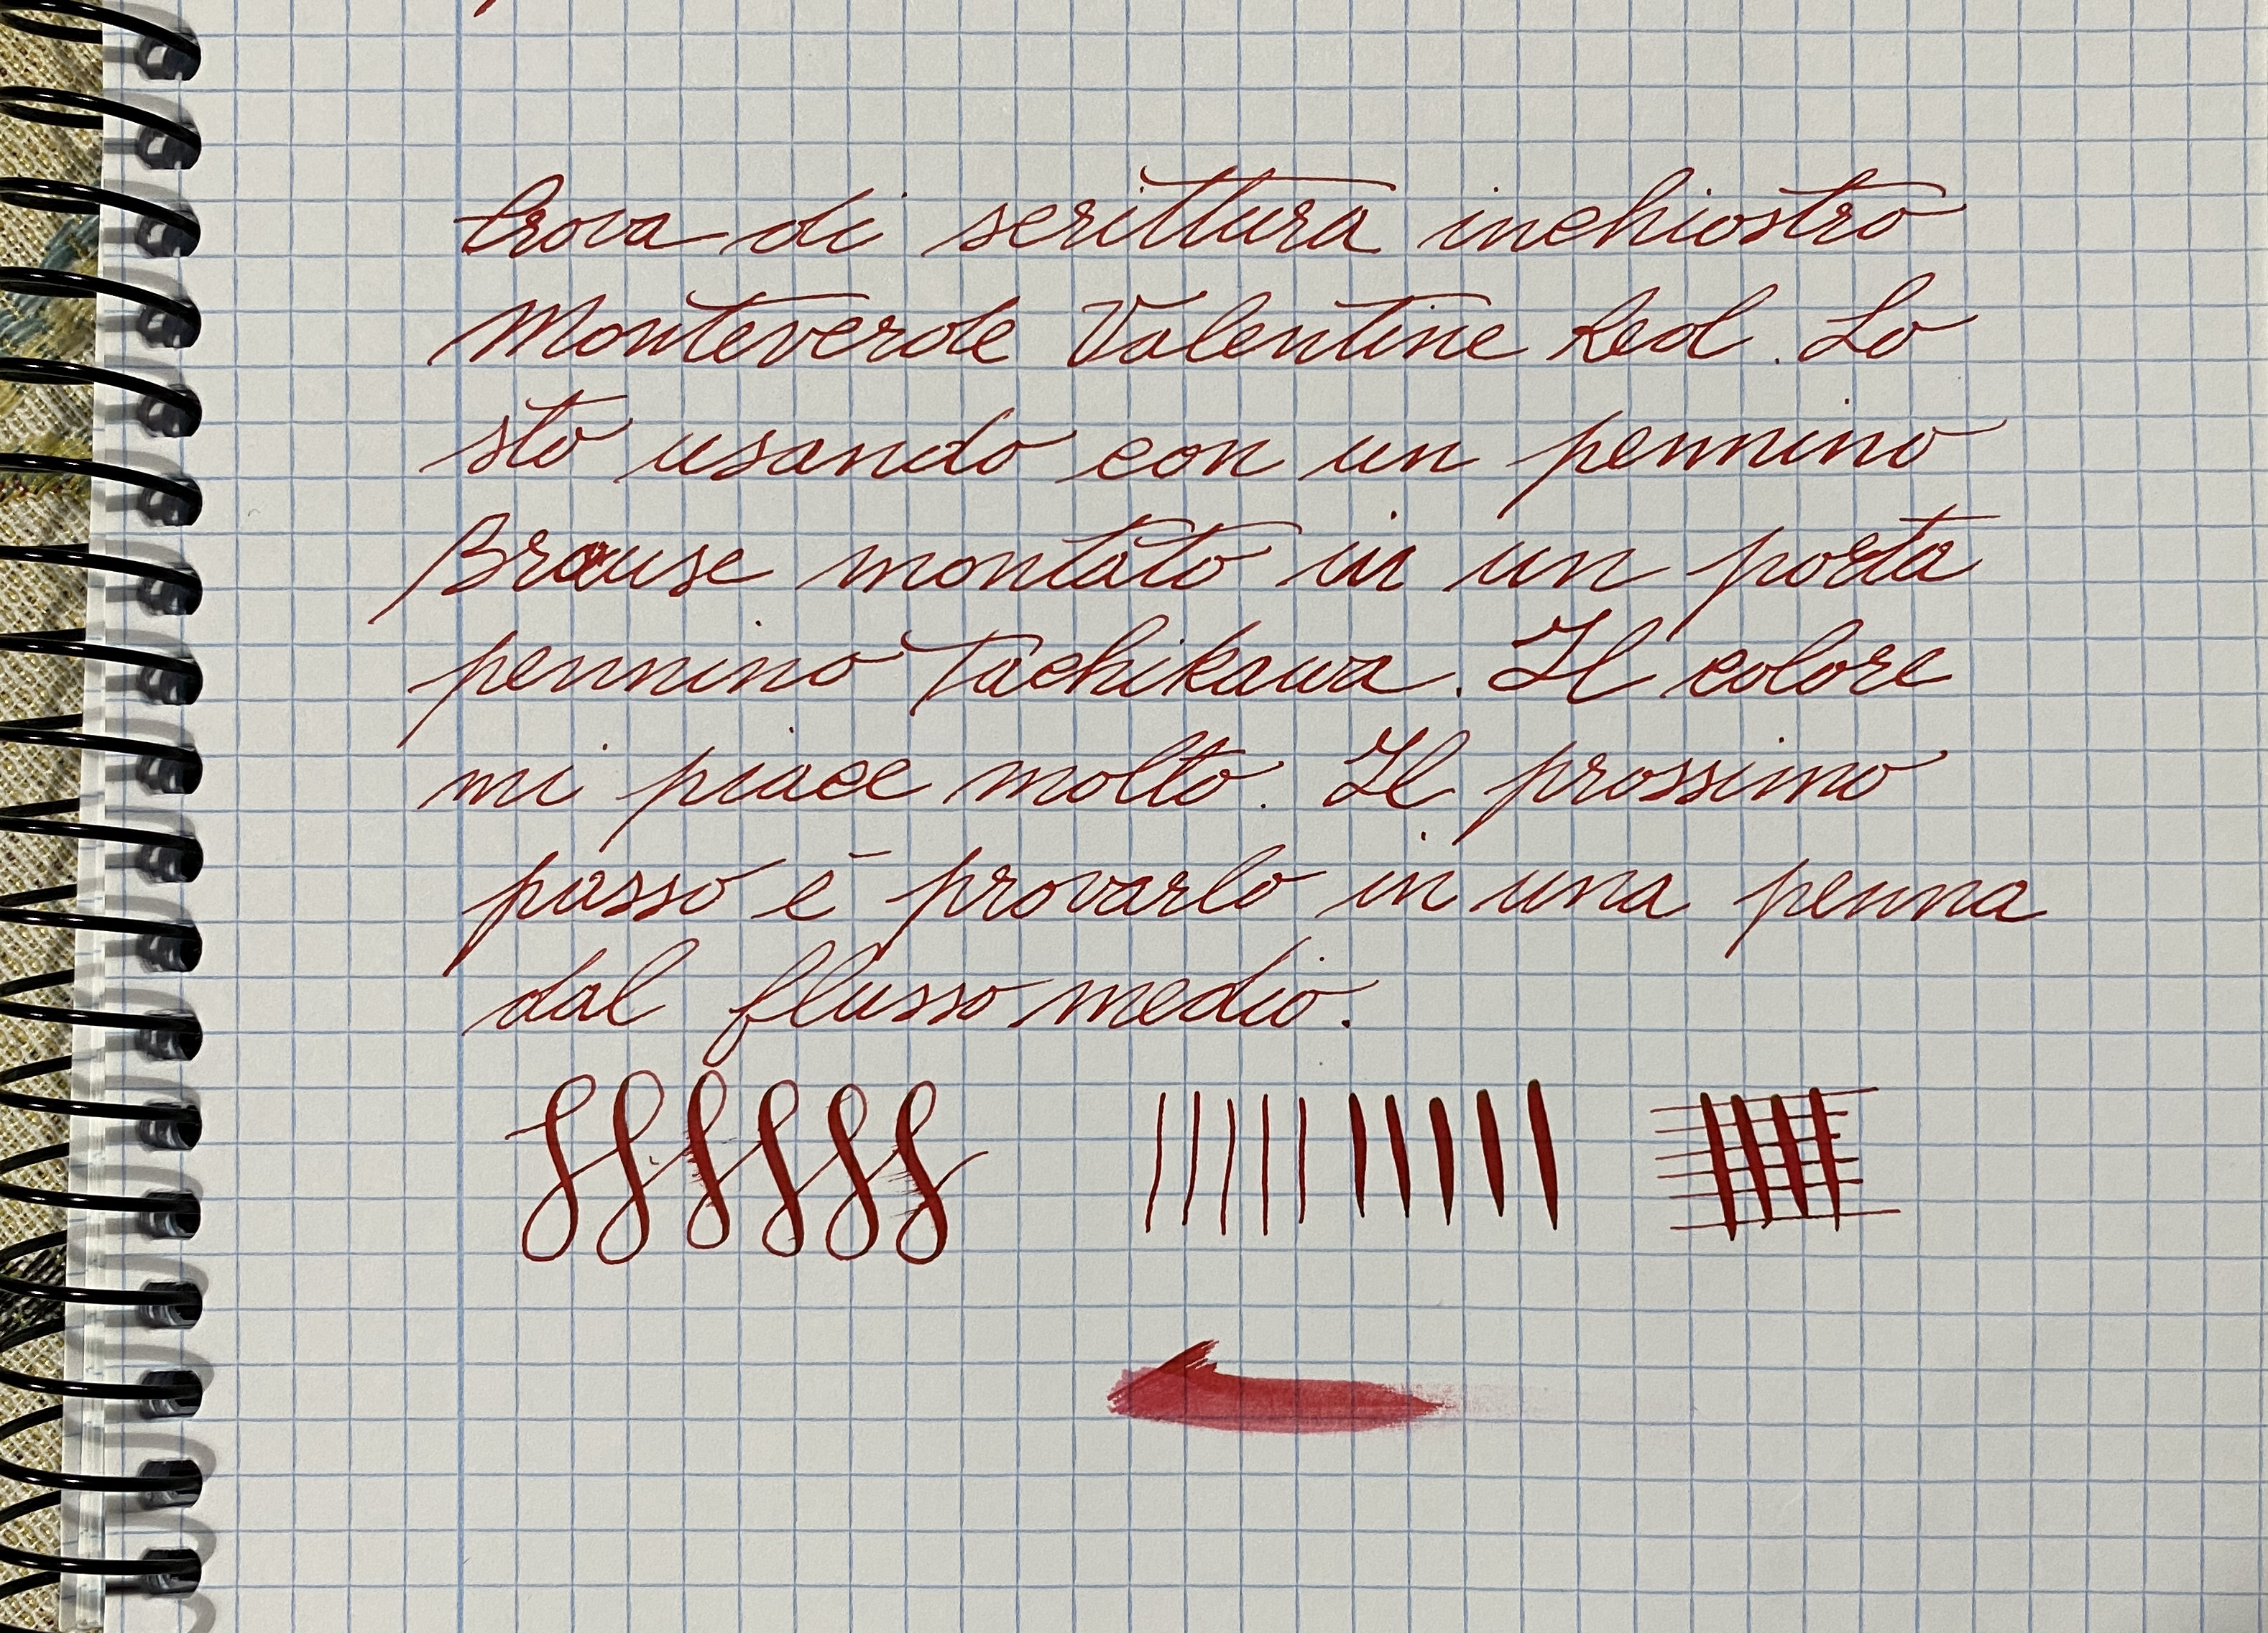 Prova di scrittura inchiostro
Monteverde Valentine Red. Lo
sto usando con un pennino
Brause montato in un porta
pennino Tachikawa. Il colore
mi piace molto. Il prossimo
passo è provarlo in una penna
dal flusso medio.